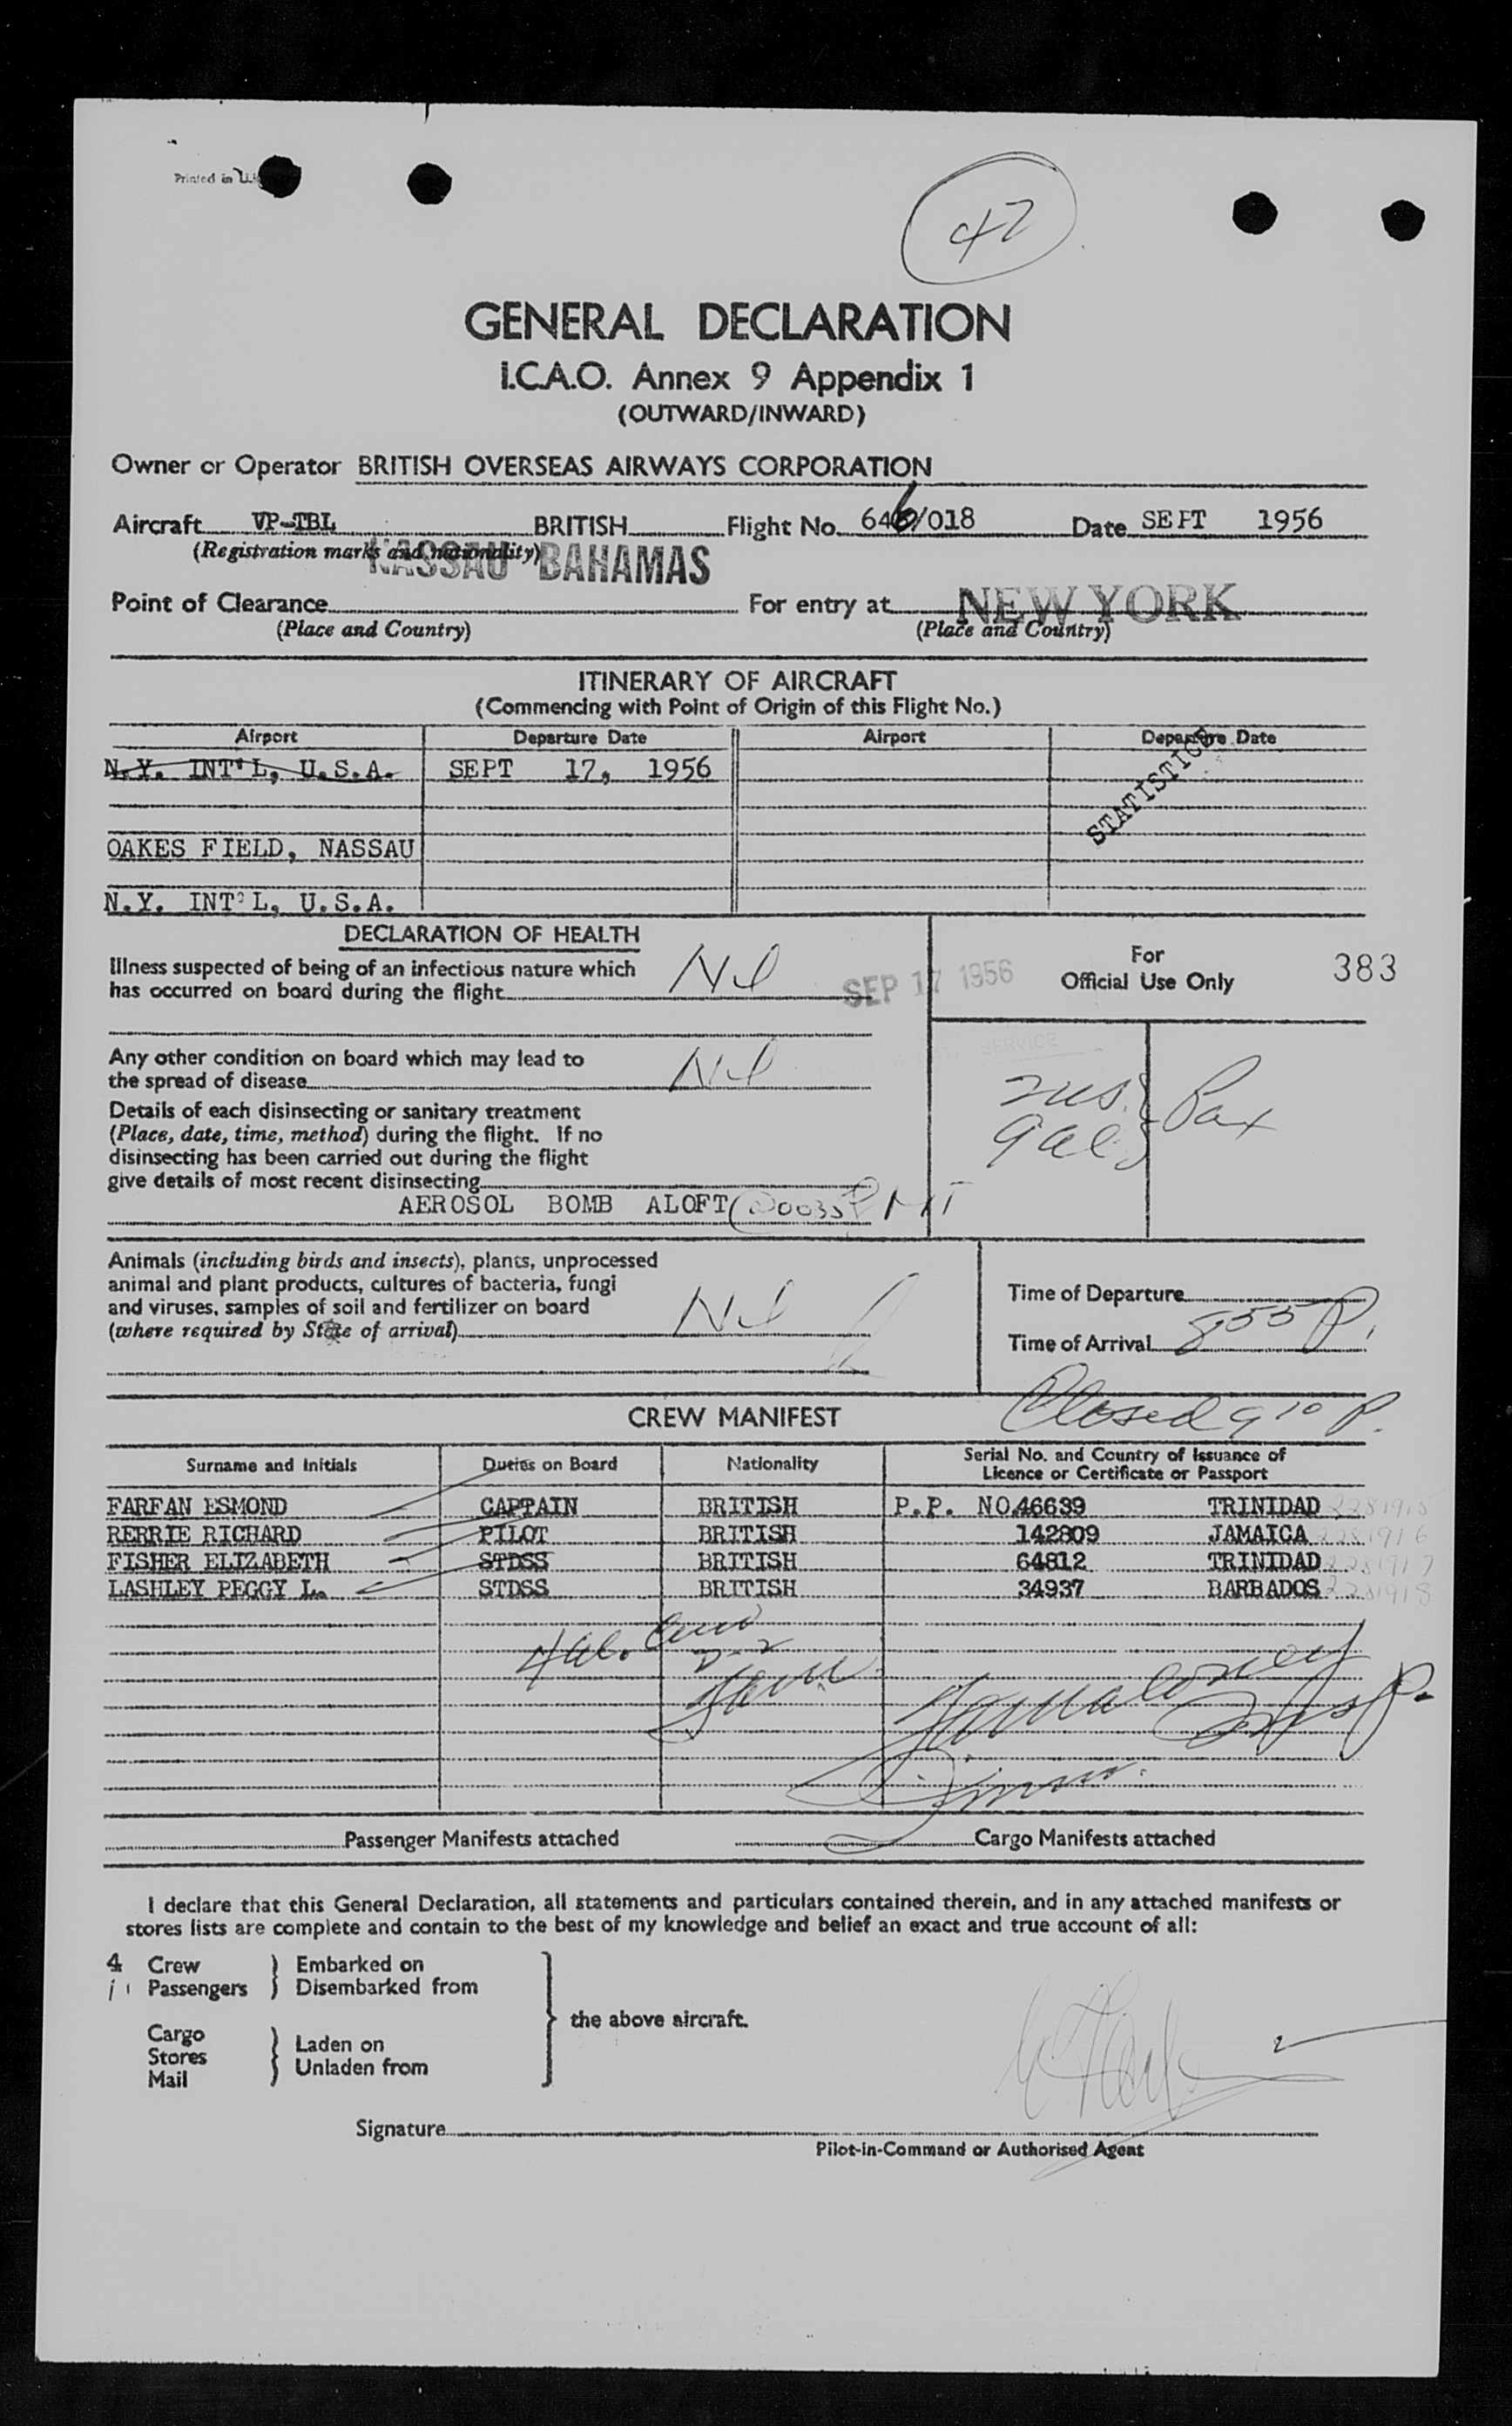 Printed in
47
GENERAL DECLARATION
I.C.A.O. Annex 9 Appendix 1
(OUTWARD/INWARD)
Owner or Operator BRITISH OVERSEAS AIRWAYS CORPORATION
Aircraft VP-TBL BRITISH Flight No. 646/018 Date SEPT 1956
(Registration marks and nationality)
NASSAU BAHAMAS
Point of Clearance For entry at NEW YORK
(Place and Country) (Place and Country)
ITINERARY OF AIRCRAFT
(Commencing with Point of Origin of this Flight No.)
Airport Departure Date Airport Departure Date
N.Y. INT'L, U.S.A. SEPT 17, 1956
STATISTICS
OAKES FIELD, NASSAU
N.Y. INT'L, U.S.A.
DECLARATION OF HEALTH
Illness suspected of being of an infectious nature which
has occurred on board during the flight Nil
SEP 17 1956
For
Official Use Only
383
Any other condition on board which may lead to
the spread of disease Nil
2 us.
9 al. } Pax
Details of each disinsecting or sanitary treatment
(Place, date, time, method) during the flight. If no
disinsecting has been carried out during the flight
give details of most recent disinsecting
AEROSOL BOMB ALOFT
Animals (including birds and insects), plants, unprocessed
animal and plant products, cultures of bacteria, fungi
and viruses, samples of soil and fertilizer on board
(where required by State of arrival) Nil
Time of Departure
Time of Arrival 855 P.
Closed 910 P.
CREW MANIFEST
Surname and Initials Duties on Board Nationality Serial No. and Country of Issuance of
Licence or Certificate or Passport
FARFAN ESMOND CAPTAIN BRITISH P.P. NO.46639 TRINIDAD 2281915
RERRIE RICHARD PILOT BRITISH 142809 JAMAICA 2281916
FISHER ELIZABETH STDSS BRITISH 64812 TRINIDAD 2281917
LASHLEY PEGGY L. STDSS BRITISH 34937 BARBADOS 2281918
4 al. Crew
D-2
Passenger Manifests attached Cargo Manifests attached
I declare that this General Declaration, all statements and particulars contained therein, and in any attached manifests or
stores lists are complete and contain to the best of my knowledge and belief an exact and true account of all:
4 Crew } Embarked on
11 Passengers } Disembarked from
the above aircraft.
Cargo
Stores } Laden on
Mail } Unladen from
Signature
Pilot-in-Command or Authorised Agent